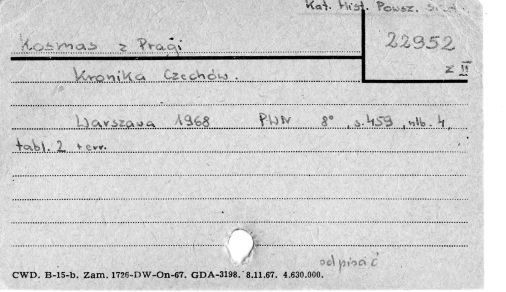 Kat. Hist. Powsz. Śred.
Kosmas z Pragi
22952
z II
Kronika Czechów.
Warszawa 1968 PWN 8° , s. 459 , nlb. 4,
tabl. 2 + err.
odpisać
CWD. B-15-b. Zam. 1726-DW-On-67. GDA-3198. 8.11.67. 4.630.000.